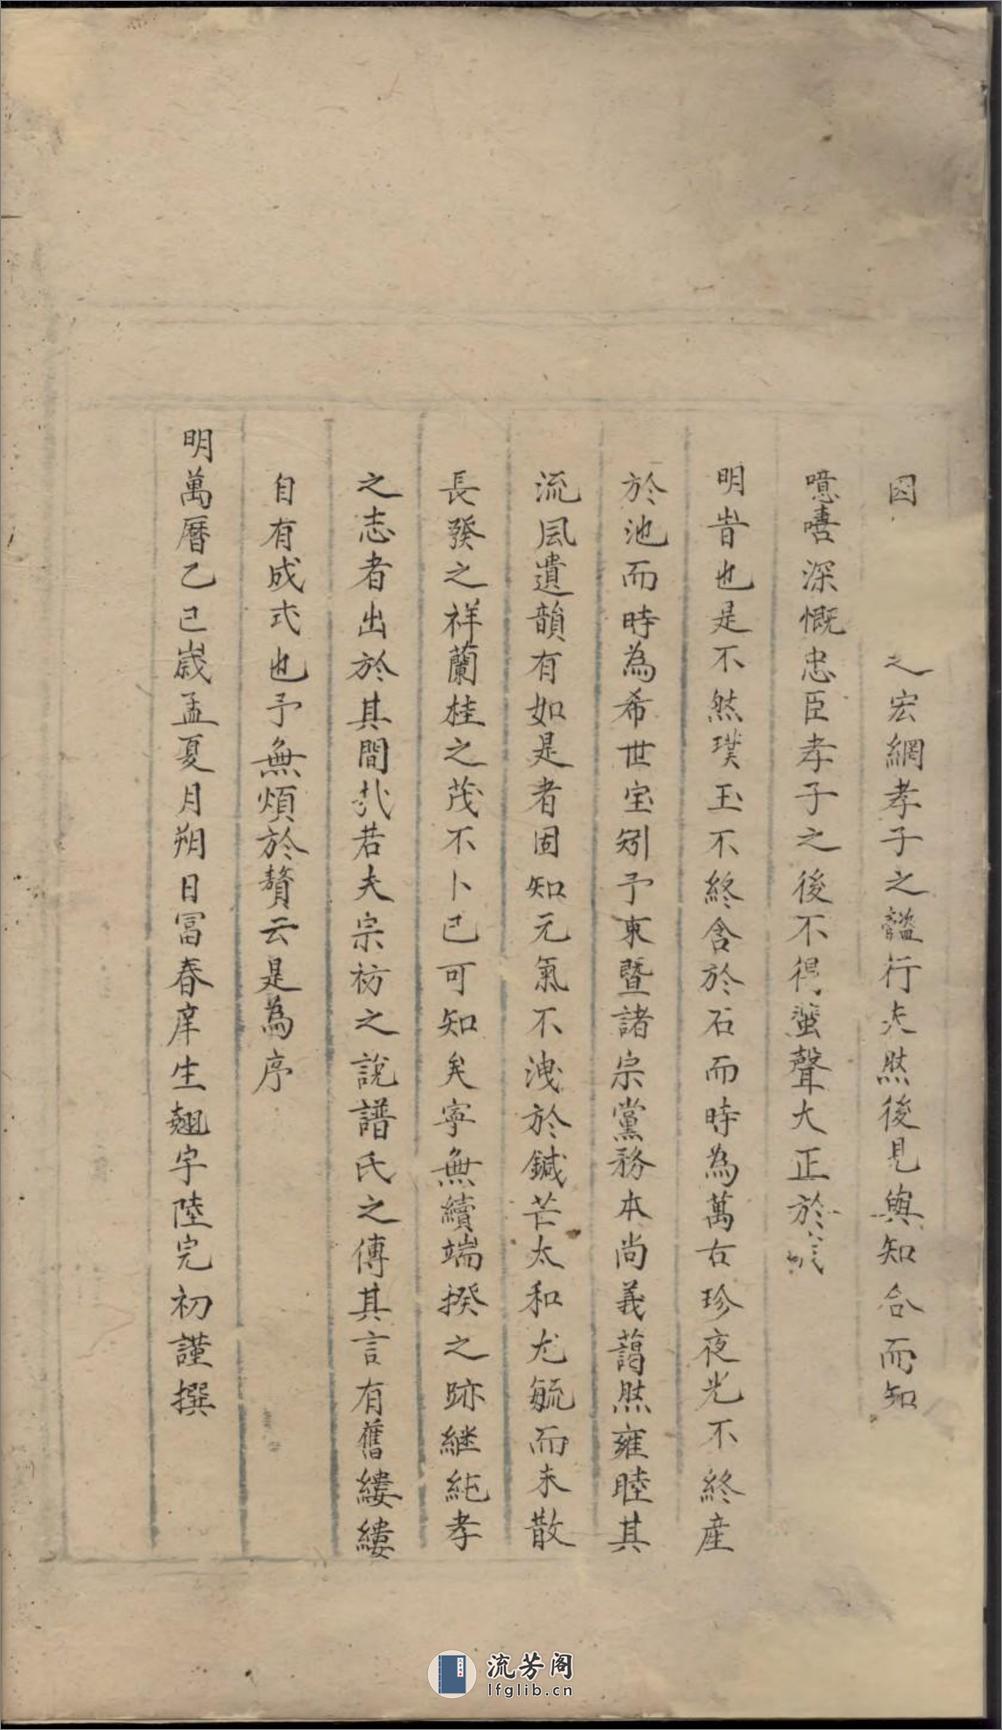 因之宏網孝子之懿行夫然後見與知合而知
噫嘻深慨忠臣孝子之後不得蜚聲大正於
明昔也是不然璞玉不終含於石而時為萬古珍夜光不終產
於池而時為希世宝矧予東暨諸宗黨務本尚義藹然雍睦其
流風遺韻有如是者固知元氣不洩於鍼芒太和尤毓而未散
長發之祥蘭桂之茂不卜已可知矣寧無續端揆之跡継純孝
之志者出於其間扎若夫宗祊之說譜氏之傳其言有舊縷縷
自有成式也予無煩於贅云是為序
明萬曆乙巳歲孟夏月朔日富春庠生翹宇陸完初謹撰
流芳阁
lfglib.cn